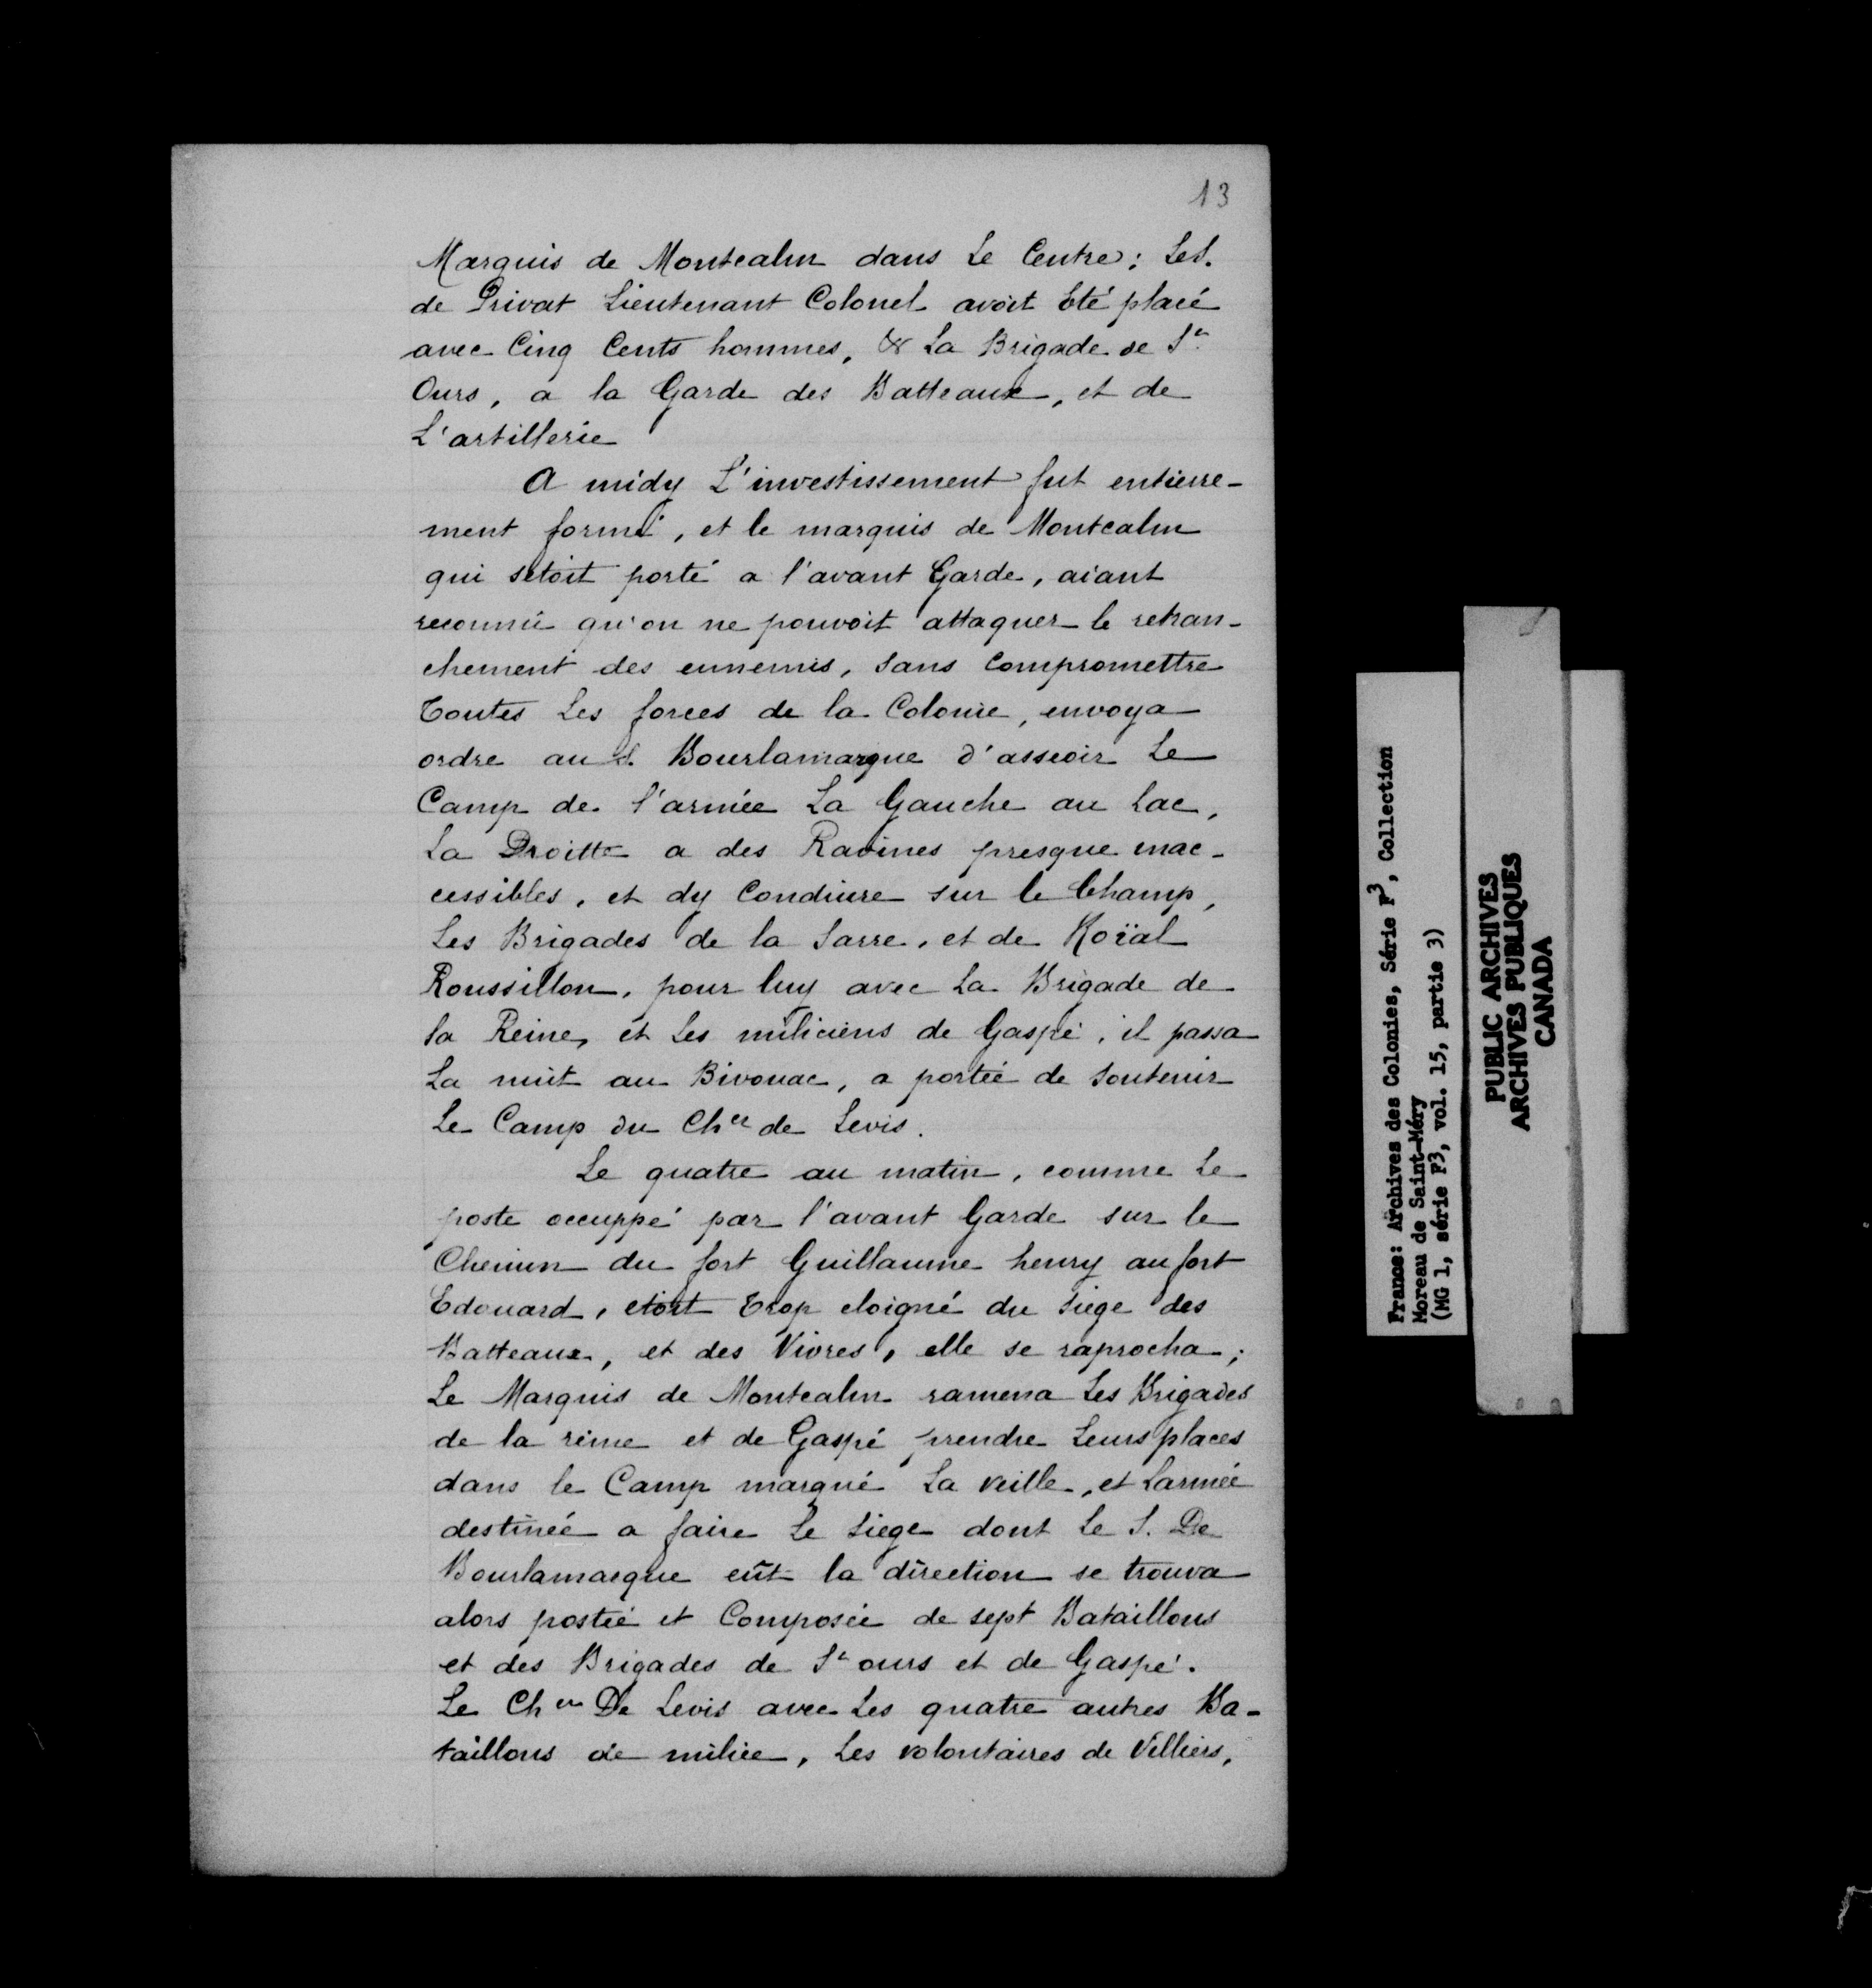 13
Marquis de Montcalm dans Le Centre; Le S.
de Privat Lieutenant Colonel avoit Eté placé
avec Cinq Cents hommes, & La Brigade de St
Ours, a la Garde des Batteaux, et de
L'artillerie
A midy L'investissement fut entierre-
ment formé, et le marquis de Montcalm
qui setoit porté a l'avant Garde, aiant
reconnü qu'on ne pouvoit attaquer le retran-
chement des ennemis, sans Compromettre
Toutes Les forces de la Colonie, envoya
ordre au S. Bourlamarque d'asseoir Le
Camp de l'armée La Gauche au Lac,
La Droitte a des Ravines presque inac-
cessibles, et dy Conduire sur le Champ,
Les Brigades de la Sarre, et de Roïal
Roussillon, pour luy avec La Brigade de
la Reine, et Les miliciens de Gaspé, il passa
La nuit au Bivouac, a portée de Soutenir
Le Camp du Cher de Levis.
Le quatre au matin, comme Le
poste occuppé par l'avant Garde sur le
Chemin du fort Guillaume henry au fort
Edouard, etoit Trop eloigné du Siege des
Batteaux, et des Vivres, elle se raprocha;
Le Marquis de Montcalm ramena Les Brigades
de la reine et de Gaspé prendre Leurs places
dans le Camp marqué La veille, et Larmée
destinée a faire Le Siege dont Le S. De
Bourlamarque eût la direction se trouva
alors postée et Composée de sept Bataillons
et des Brigades de St ours et de Gaspé.
Le Cher De Levis avec Les quatre autres Ba-
taillons de milice, Les volontaires de Villiers,
France: Archives des Colonies, Série F3, Collection
Moreau de Saint-Méry
(MG 1, série F3, vol. 15, partie 3)
PUBLIC ARCHIVES
ARCHIVES PUBLIQUES
CANADA